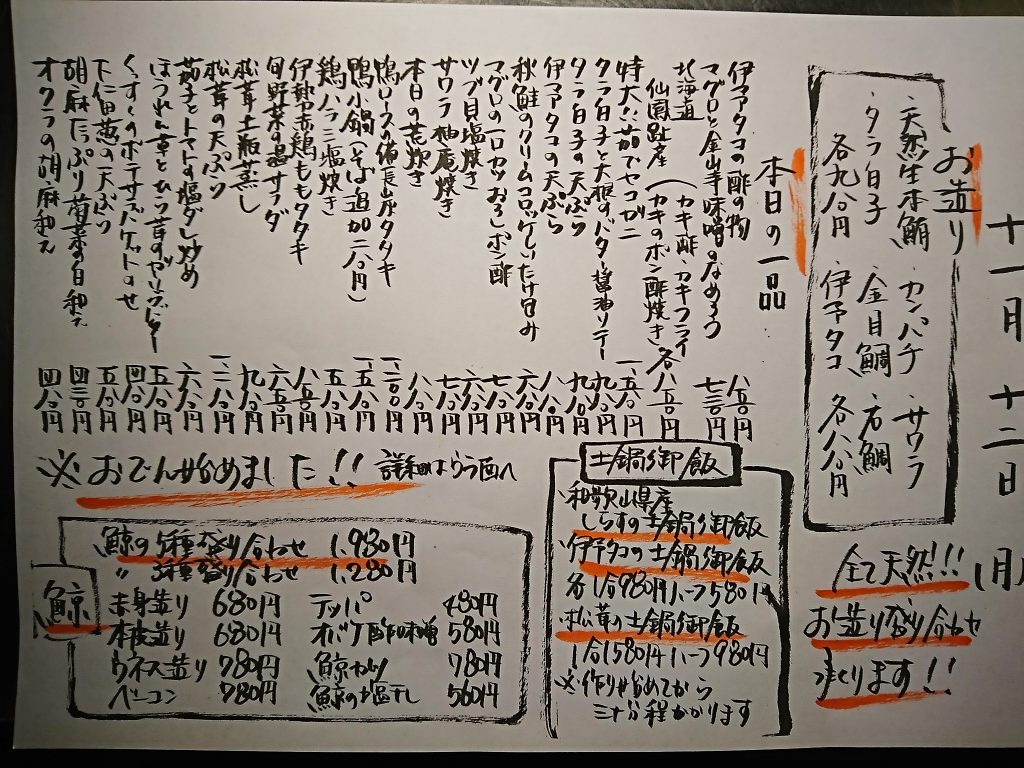 十一月十二日（月）
お造り
・天然生本鮪　カンパチ　サワラ
・タラ白子　金目鯛　石鯛
各九八〇円　伊予タコ　各八八〇円
全て天然!!!
お造り盛り合わせ
つくります!!
本日の一品
伊予タコの酢の物　八五〇円
マグロと金山寺味噌のなめろう　七三〇円
北海道
仙鳳趾産（カキ酢・カキフライ
カキのポン酢焼き　各八五〇円
特大たた茹でセコガニ
タラ白子と大根のバター醤油ソテー
タラ白子の天ぷら
伊予タコの天ぷら
秋鮭のクリームコロッケしいたけ包み
マグロの一口カツおろしポン酢
ツブ貝塩焼き
サワラ柚庵焼き
本日の荒炊き
鴨ロースの備長山椒タタキ
鴨小鍋（そば追加二八〇円）
鶏ハラミ塩焼き
伊勢赤鶏ももタタキ
旬野菜の温サラダ
松茸土瓶蒸し
松茸の天ぷら
茄子とトマトの塩ダレ炒め
下仁田葱の天ぷら　五八〇円
胡麻たっぷり菊菜の白和え　四三〇円
オクラの胡麻和え　四八〇円
※おでん始めました!!　詳細はうら面へ
土鍋御飯
・和歌山県産
しらすの土鍋御飯
・伊予タコの土鍋御飯
各1合980円ハーフ580円
・松茸の土鍋御飯
1合1580円ハーフ980円
※作り始めてから
三十分程かかります
鯨
鯨の5種盛り合わせ　1,980円
〃　3種盛り合わせ　1,280円
赤身造り　680円　テッパ　480円
本皮造り　680円　オバケ酢味噌　580円
ウネス造り　780円　鯨カツ　780円
ベーコン　780円　鯨の塩干し　560円